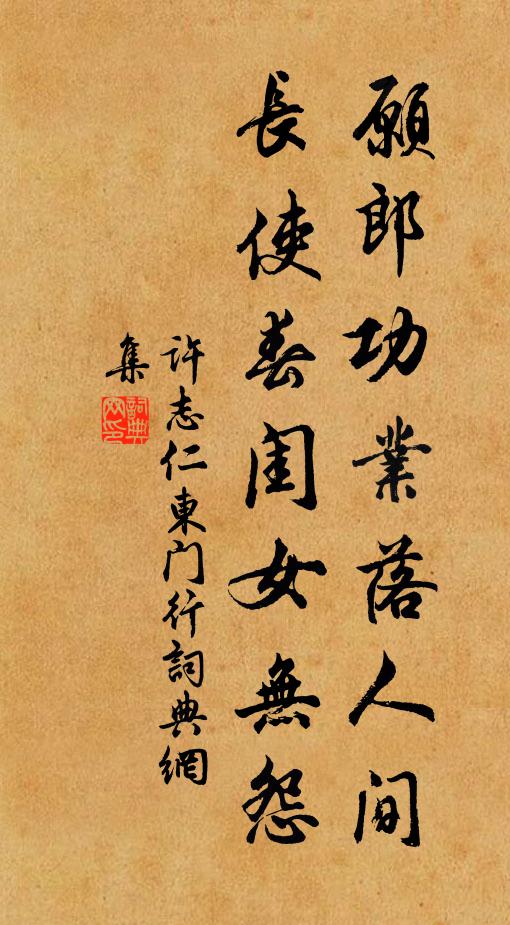 願郎功業落人间
長使春閨女無怨
許志仁東门行詞典網
集
詞典網印